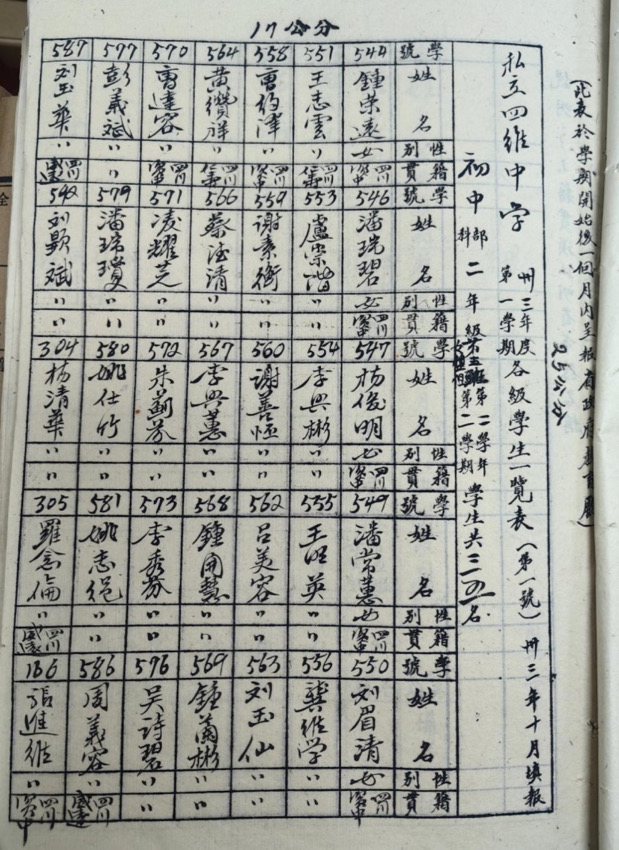 17公分
(此表於學期開始後一個月內呈報省政府教育廳)
25公分
私立四維中学 卅三年度第一學期 各級學生一覽表(第一號) 卅三年十月填報
初中部科 二年級 第二學年第一學期 學生共三五名
學號 544 551 558 564 570 577 587
姓名 鍾榮遠 王志雲 曹約澤 黃纘祥 曹達容 彭義斌 刘玉華
性別 女 〃 〃 〃 〃 〃 〃
籍貫
學號 546 553 559 566 571 579 592
姓名 潘珖碧 盧崇諧 谢素衡 蔡淦清 凌耀芝 潘琼瓊 刘顥斌
性別 女 〃 〃 〃 〃 〃 〃
籍貫 四川 〃 〃 〃 〃 〃 〃
學號 547 554 560 567 572 580 304
姓名 杨俊明 李興彬 谢善恆 李興蕙 朱蘅芬 姚仕竹 杨清華
性別 女 〃 〃 〃 〃 〃 〃
籍貫 四川 〃 〃 〃 〃 〃 〃
學號 549 555 562 568 573 581 305
姓名 潘常蕙 王明英 呂美容 鍾用慧 李秀芬 姚志绲 羅念倫
性別 女 〃 〃 〃 〃 〃 〃
籍貫 四川 〃 〃 〃 〃 〃 四川威遠
學號 550 556 563 569 576 586 166
姓名 刘眉清 龔維学 刘玉仙 鍾蘭彬 吴詩碧 周義容 張進維
性別 女 〃 〃 〃 〃 〃 〃
籍貫 四川 〃 〃 〃 〃 四川威遠 四川